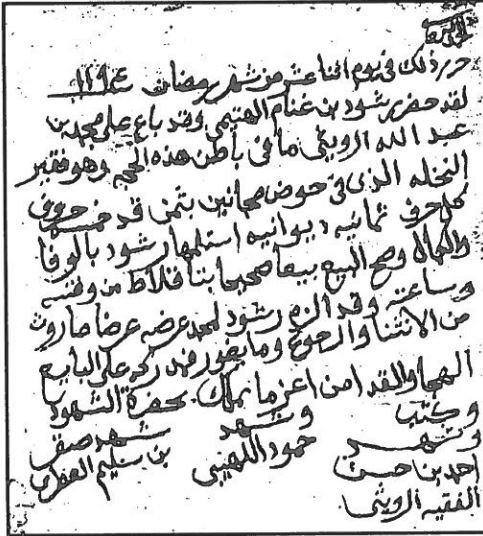 حرر ذلك في يوم اثنا عشر من شهر رمضان ١٢٩٤
لقد حضر رشود بن غنام الهتيمي وقد باع على محمد بن
عبد الله الرويثي ما في باطن هذه الحجه وهو فقير
النخله الذي في حوض مجانين بثمن قدره خمسة حروف
كل حرف ثمانيه ديوانيه استلمها رشود بالوفا
والكمال وصح البيع بيعا صحيحا بتا فلاط من وقته
وساعته وقد الزم رشود لمحمد عرضه عرضا
من الانثنا والرجوع وما يغور فدركه على البايع
امن اعز ما يملك بحضرة الشهود
وكتب وشهد شهد صقر
وشهد حمود اللهيبي بن سليم
احمد بن حسن
الفقيه الرويثي